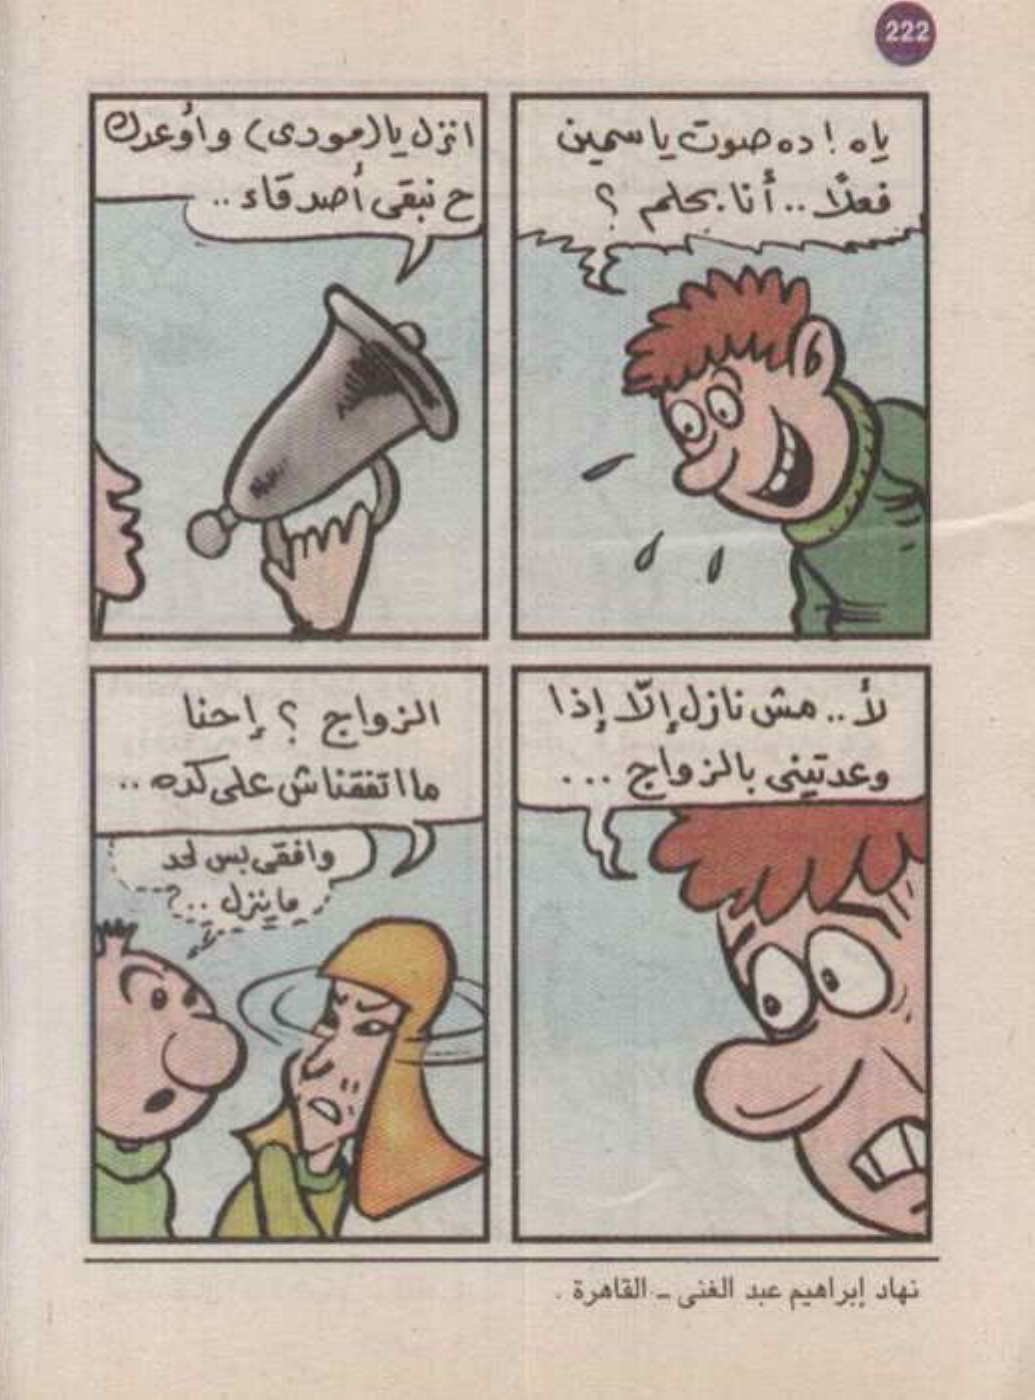 222
ياه ! ده صوت ياسمين
فعلًا .. أنا بحلم ؟
انزل يا (مودى) وأوعدك
ح نبقى أصدقاء ..
لأ .. مش نازل إلّا إذا
وعدتينى بالزواج ...
الزواج ؟ إحنا
ما اتفقناش على كده ..
وافقى بس لحد
ما ينزل ..؟
نهاد إبراهيم عبد الغنى - القاهرة .